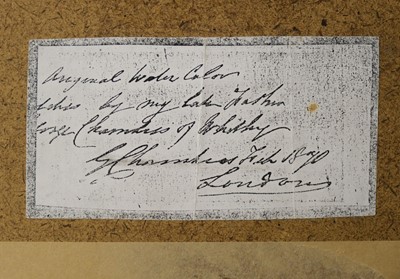 Original Water Color
by my late Father
Chambers of Whitby
G Chambers Feb 1890
London